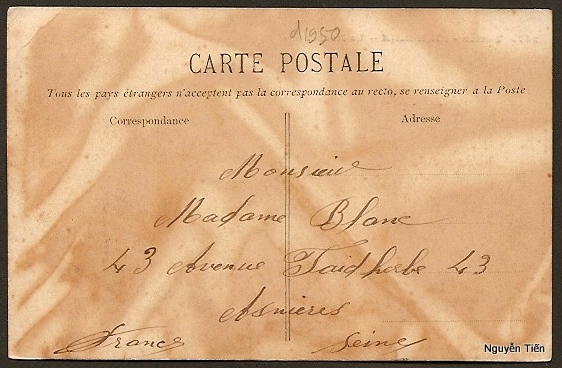 d1950
CARTE POSTALE
Tous les pays étrangers n'acceptent pas la correspondance au recto, se renseigner a la Poste
Correspondance Adresse
Monsieur
Madame Blanc
43 Avenue Faidherbe 43
Asnieres
France Seine
Nguyễn Tiến